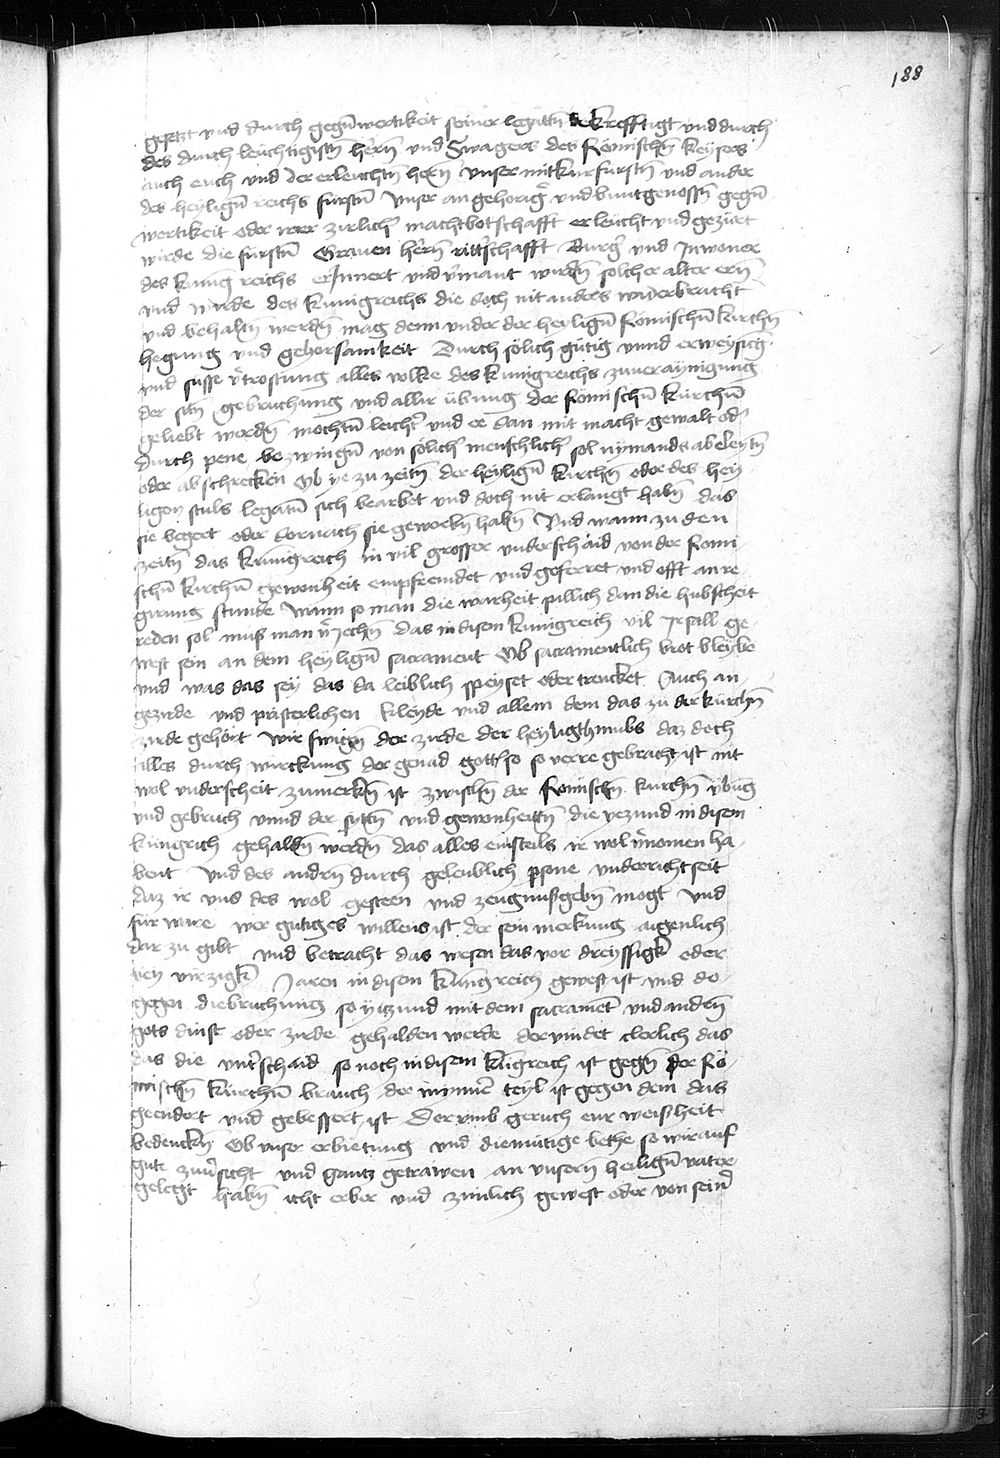 188
gesetzt vnd durch gegnwertikeit seiner legatn bekrefftigt vnd durch
des durch leuchtigistn hern vnd Swagers des Romischn keysers
auch euch vnd der erleuchtn hern vnser mitkurfurstn vnd ander
des heylign reichs furstn vnser an gehorig vnd buntgenossn gegn
wertikeit oder irer zirlich machtbotschafft erleucht vnd geziert
wirde die furstn Grauen hern ritterschafft Burger vnd Inwoner
des kunigreichs erInnert vnd vermant wurdn solcher alter ern
vnd wirde des kunigreichs die doch nit anders widerbracht
vnd behaltn werdn mag denn vnder der heylign Romischn kirchn
hegung vnd gehorsamkeit Durch sölich gütig vnnd erweysung
vnd susse vertrostung alles volke des kunigreichs zuuerayinigung
der sitn gebruchung vnd aller übung der Romischn kürchn
geliebt werdn mochtn leicht vnd er dan mit macht gewalt oder
durch pene bezwingn von solich menschlich sol nymands abeleytn
oder abschrecken Ob ye zu zeitn der heylign kirchn oder des hey
ligen stuls legatn sich bearbet vnd doch nit erlangt habn das
sie begert oder dornach sie geworbn habn Vnd wann zu den
zeitn das kunigreich in vil grosser vnderschaid von der Romi
schn kurchn gewonheit empfremdet vnd geferret vnd offt an re
girung stunde Wann so man die warheit pillich dan die hubscheit
reden sol muß man veriechn das in disem kunigreich vil Irsall ge
west sein an dem heylign sacrament Ob sacramentlich brot bleybe
vnd was das sey das da leiblich speyset oder trencket Auch an
gezirde vnd pristerlichen kleyde vnd allem dem das zu der kürchn
zirde gehört Wir swign der zirde der heyligthumbs daz doch
alles durch wurckung der genad gotts so so verre gebracht ist nit
wol vnderscheit zumerkn ist zwischn der Romischn kurchn übung
vnd gebruch vnnd der sittn vnd gewonheittn die yezund in disem
küngrich gehaltn werdn das alles einsteils ir wol vernomen ha
bent Vnd des andern durch geleublich person vnderricht seit
daz ir vns des wol gesteen vnd zeugnußgebn mogt Vnd
für ware wer gutiges willens ist der sein merkung aigenlich
dar zu gibt vnd betracht das wesen das vor dreyssigk oder
bey virzigk Jaren in disem kungreich gewest ist vnd do
gegen die bruchung so yitzund mit dem sacrament vnd andern
gots dinst oder zirde gehalden werde der vindet clerlich das
das die vnterschaid so noch in disem kungreich ist gegn der Rö
mischn kürchn brauch der mynner teyl ist gegen dem das
geendert vnd gebessert ist Der vmb geruch eur weißheit
bedencken Ob vnser erbietung vnd diemütige bethe so wir auf
gute zuuersicht vnd gantz getrawen an vnsern heilign vater
gelegt habn icht erber vnd zimlich gewest oder von seiner